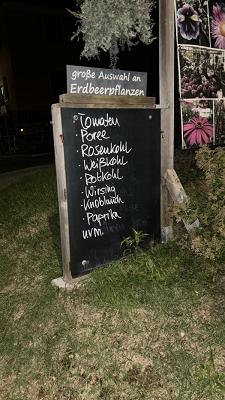 große Auswahl an
Erdbeerpflanzen
· Tomaten
· Poree
· Rosenkohl
· Weißkohl
· Rotkohl
· Wirsing
· Knoblauch
· Paprika
uvm.